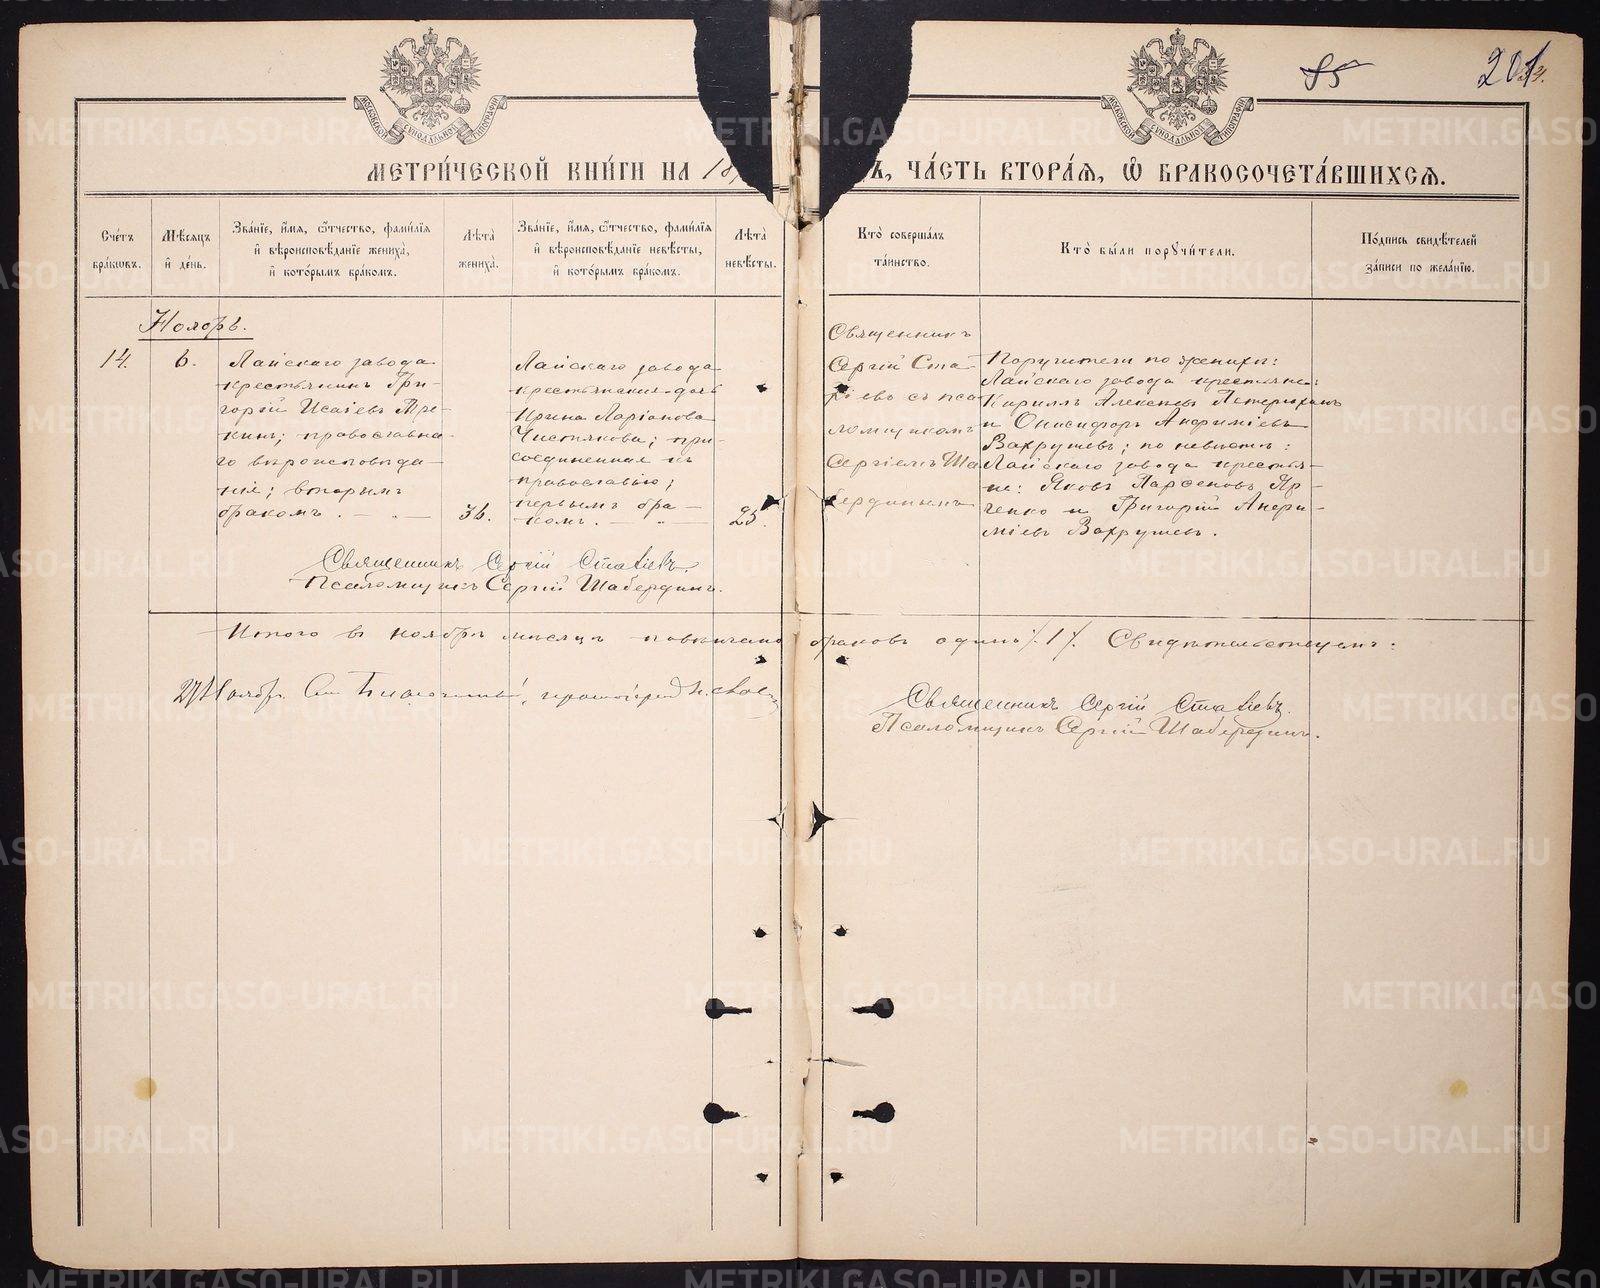 85
201
МЕТРИ́ЧЕСКОЙ КНИ́ГИ НА 18
Ъ, ЧА́СТЬ ВТОРА́Я, Ѡ БРАКОСОЧЕТА́ВШИХСЯ.
Сче́тъ бра́кωвъ.
Мѣ́сяцъ и҆ де́нь.
Зва́нїе, и҆́мя, ѻ҆́тчество, фами́лїя и҆ вѣроисповѣ́данїе жениха̀, и҆ кото́рымъ бра́комъ.
Лѣта̀ жениха̀.
Зва́нїе, и҆́мя, ѻ҆́тчество, фами́лїя и҆ вѣроисповѣ́данїе невѣ́сты, и҆ кото́рымъ бра́комъ.
Лѣта̀ невѣ́сты.
Кто̀ соверша́лъ та́инство.
Кто̀ бы́ли порꙋчи́тели.
По́дпись свидѣ́телей за́писи по жела́нїю.
Ноябрь.
14.
6.
Лайскаго завода
крестьянинъ Гри-
горій Исаіевъ
православна-
го вѣроисповѣда-
нія; вторымъ
бракомъ. — „ —
36.
Лайскаго завода
крестьянская дочь
Ирина Ларіонова
Чистякова; при-
соединенная къ
православію;
первымъ бра-
комъ. — „ —
25.
Священникъ
Сергій Ста-
тіевъ съ пса-
ломщикомъ
Сергіемъ Ша-
бердинымъ
Поручители по женихѣ:
Лайскаго завода крестьяне:
Кириллъ Алексѣевъ
и Онисифоръ Андреміевъ
Вахрушевъ; по невѣстѣ:
Лайскаго завода крестья-
не: Яковъ Парѳеновъ Яр-
ченко и Григорій Андре-
міевъ Вахрушевъ.
Священникъ Сергій Статіевъ.
Псаломщикъ Сергій Шабердинъ.
Итого въ ноябрѣ мѣсяцѣ повѣнчано браковъ одинъ /1/. Свидѣтельствуемъ:
Священникъ Сергій Статіевъ.
Псаломщикъ Сергій Шабердинъ.
METRIKI.GASO-URAL.RU